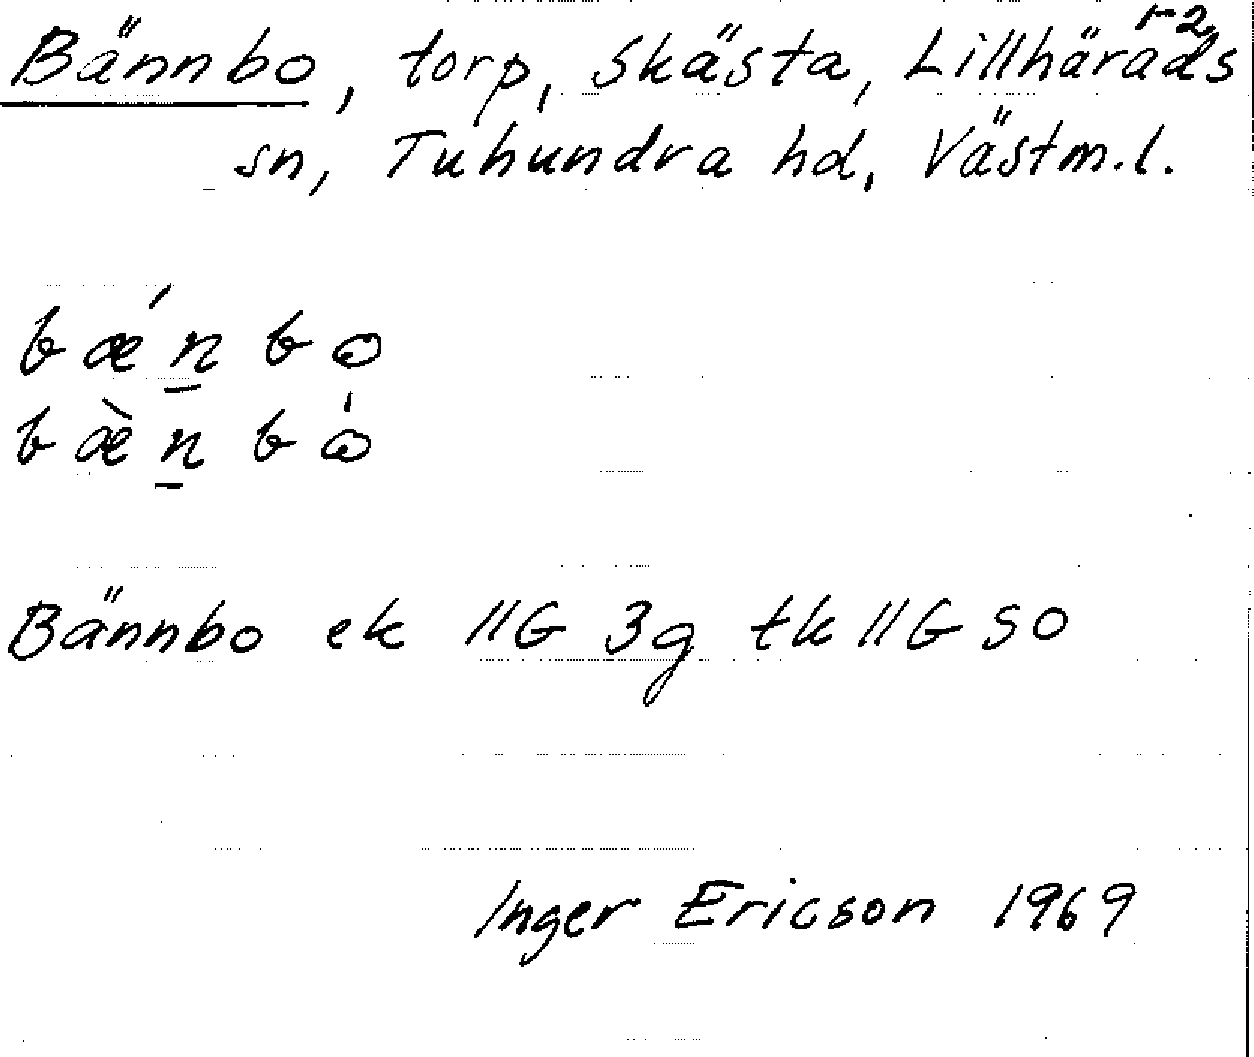 1-2
Bännbo, torp, Skästa, Lillhärads
sn, Tuhundra hd, Västm.l.
bǽn bo
bæ̀n bo̍
Bännbo ek 11G 3g tk 11G SO
Inger Ericson 1969